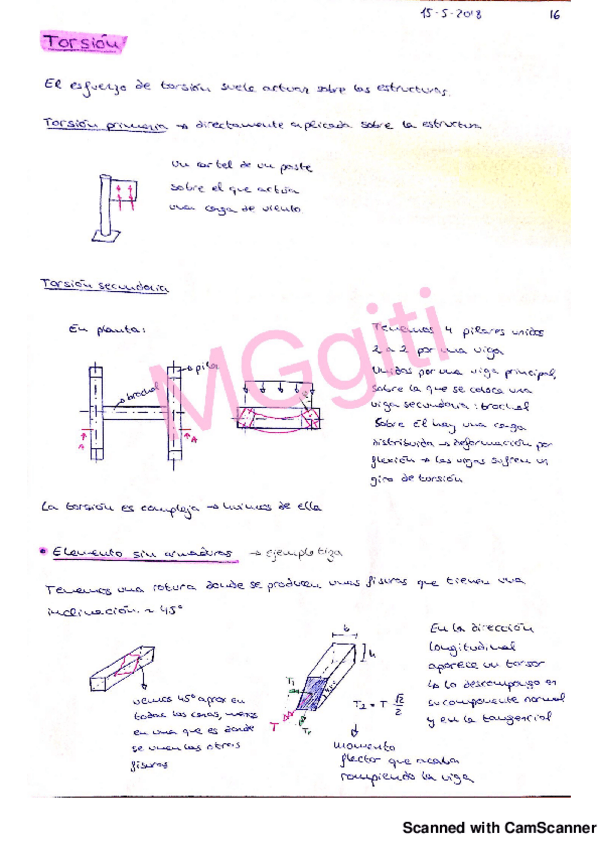 15-5-2018 16
Torsión
El esfuerzo de torsión suele actuar sobre las estructuras.
Torsión primaria → directamente aplicada sobre la estructura
Un cartel de un poste
sobre el que actúa
una carga de viento
Torsión secundaria
En planta:
pilar
brochal
A
A
Tenemos 4 pilares unidos
2 a 2 por una viga
Unidos por una viga principal,
sobre la que se coloca una
viga secundaria: brochal
Sobre él hay una carga
distribuida → deformación por
flexión → las vigas sufren un
giro de torsión
La torsión es compleja → huimos de ella
• Elemento sin armaduras → ejemplo tiza
Tenemos una rotura donde se producen unas fisuras que tienen una
inclinación ~ 45º
vemos 45º apar en
todas las caras, menos
en una que es donde
se unen las otras
fisuras
b
h
45º
T
T₂ = T √2/2
momento
flector que acaba
rompiendo la viga
En la dirección
longitudinal
aparece un torsor
↳ lo descompongo en
su componente normal
y en la tangencial
MGgiti
Scanned with CamScanner